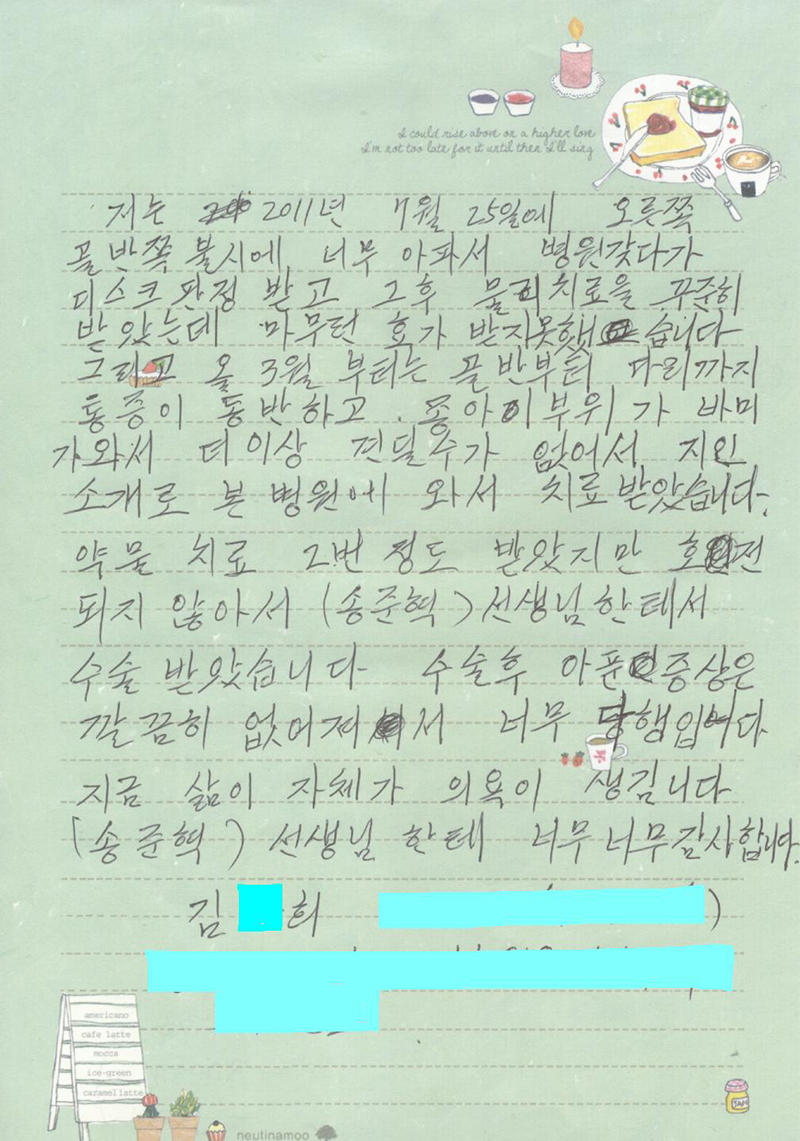 I could rise above on a higher love
I'm not too late for it until then I'll sing
저는 2011년 7월 25일에 오른쪽
골반쪽 불시에 너무 아파서 병원갔다가
디스크 판정 받고 그후 물리치료을 꾸준히
받았는데 마무런 효가 받지못했습니다
그리고 올 3월 부터는 골반부터 다리까지
통증이 동반하고. 종아리부위가 바미
가와서 더이상 견딜수가 없어서 지인
소개로 본 병원에 와서 치료받았습니다.
약물 치료 2번 정도 받았지만 호전
되지 않아서 (송준혁) 선생님한테서
수술 받았습니다 수술후 아픈증상은
깔끔히 없어져서 너무 당행입니다
지금 삶이 자체가 의욕이 생깁니다
(송준혁) 선생님 한테 너무너무감사합니다.
김 희 )
americano
cafe latte
mocca
ice-green
caramel latte
JAM
neutinamoo